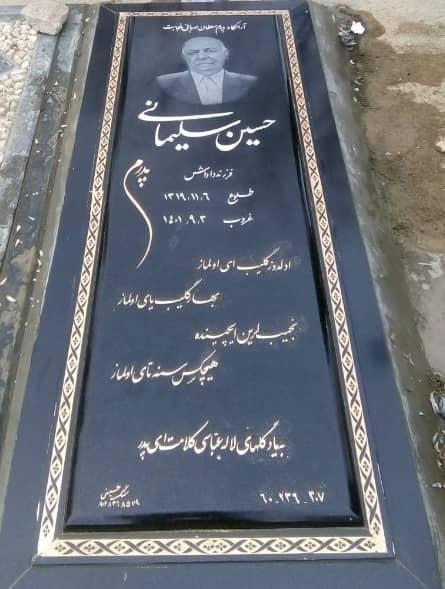 آرامگاه پدرم سلطان صداقت و نجابت
حسین سلیمانی
پدرم
فرزند داداش
طلوع ۱۳۱۹.۱۱.۶
غروب ۱۴۰۱.۹.۳
اولدوز گلیب ای اولماز
بهار گلیب یای اولماز
نجیب لرین ایچینده
هیچکس سنه تای اولماز
بیاد گلهای لاله عباسی کلامت ای پدر
۶۰-۷۳۶-۳۰۷